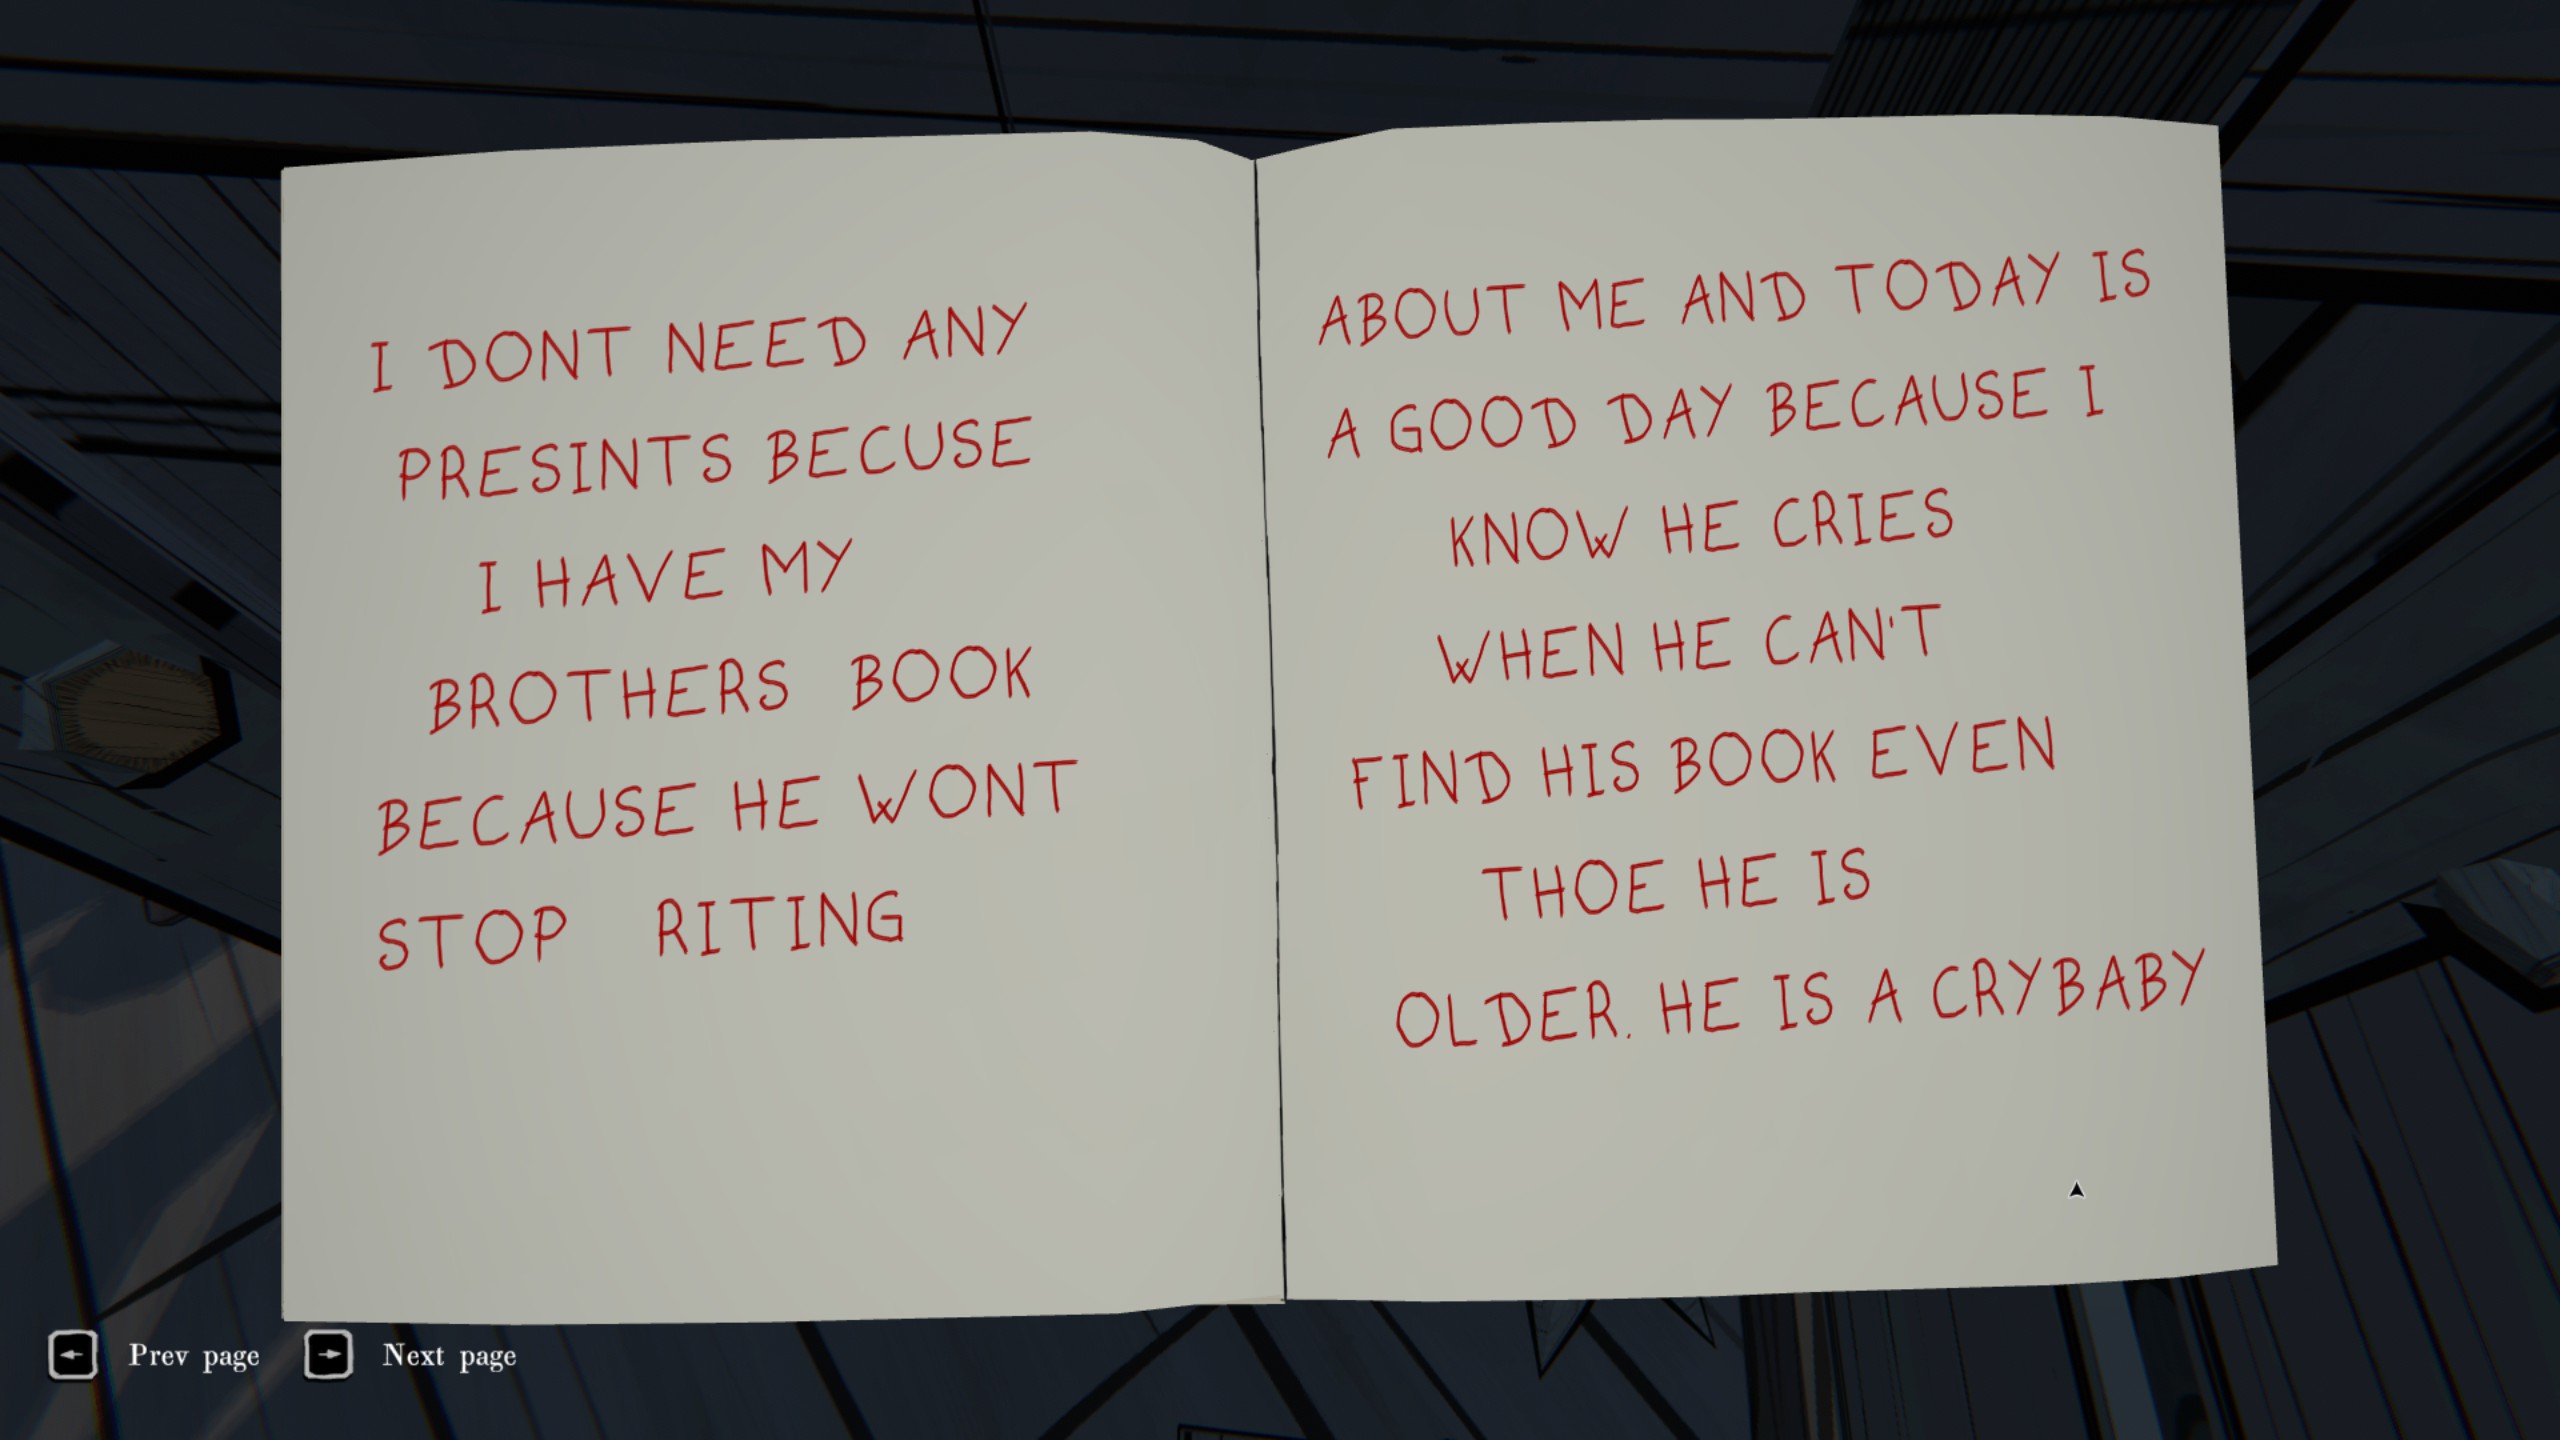 I DONT NEED ANY
PRESINTS BECUSE
I HAVE MY
BROTHERS BOOK
BECAUSE HE WONT
STOP RITING
ABOUT ME AND TODAY IS
A GOOD DAY BECAUSE I
KNOW HE CRIES
WHEN HE CAN'T
FIND HIS BOOK EVEN
THOE HE IS
OLDER. HE IS A CRYBABY
Prev page Next page